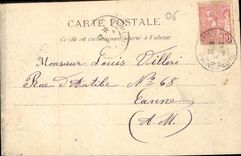 06
CARTE POSTALE
Ce côté est exclusivement réservé à l'adresse
Monsieur Louis Villeri
Rue d'Antibe No 68
Canne
(A. M.)